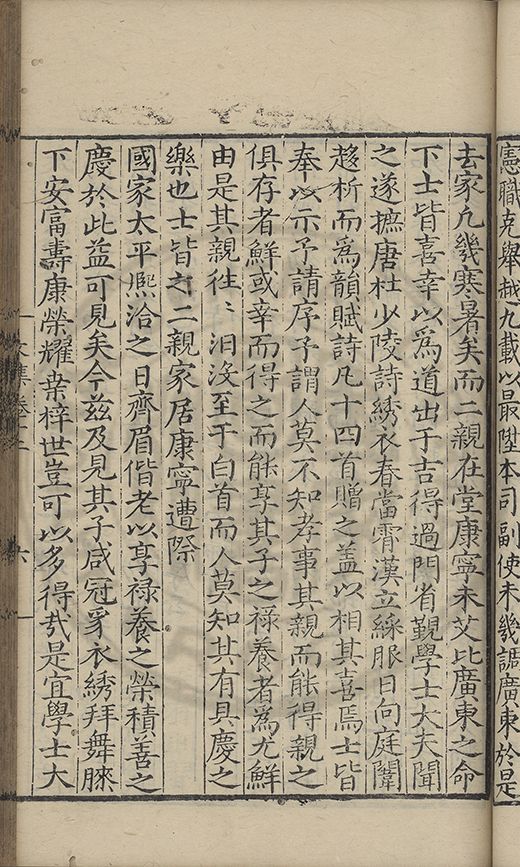 憲職克舉越九載以最陞本司副使未幾調廣東於是
去家凢幾寒暑矣而二親在堂康寧未艾比廣東之命
下士皆喜幸以爲道出于吉得過門省覲學士大夫聞
之遂摭唐杜少陵詩綉衣春當霄漢立綵服日向庭闈
趍析而爲韻賦詩凢十四首贈之盖以相其喜焉士皆
奉以示予請序予謂人莫不知孝事其親而能得親之
俱存者鮮或幸而得之而能享其子之禄養者爲尤鮮
由是其親徃〻汨没至于白首而人莫知其有具慶之
樂也士皆之二親家居康寧遭際
國家太平熈洽之日齊眉偕老以享禄養之榮積善之
慶於此益可見矣今兹及見其子咸冠豸衣綉拜舞膝
下安富壽康榮耀桒梓世豈可以多得㢤是宜學士大
六